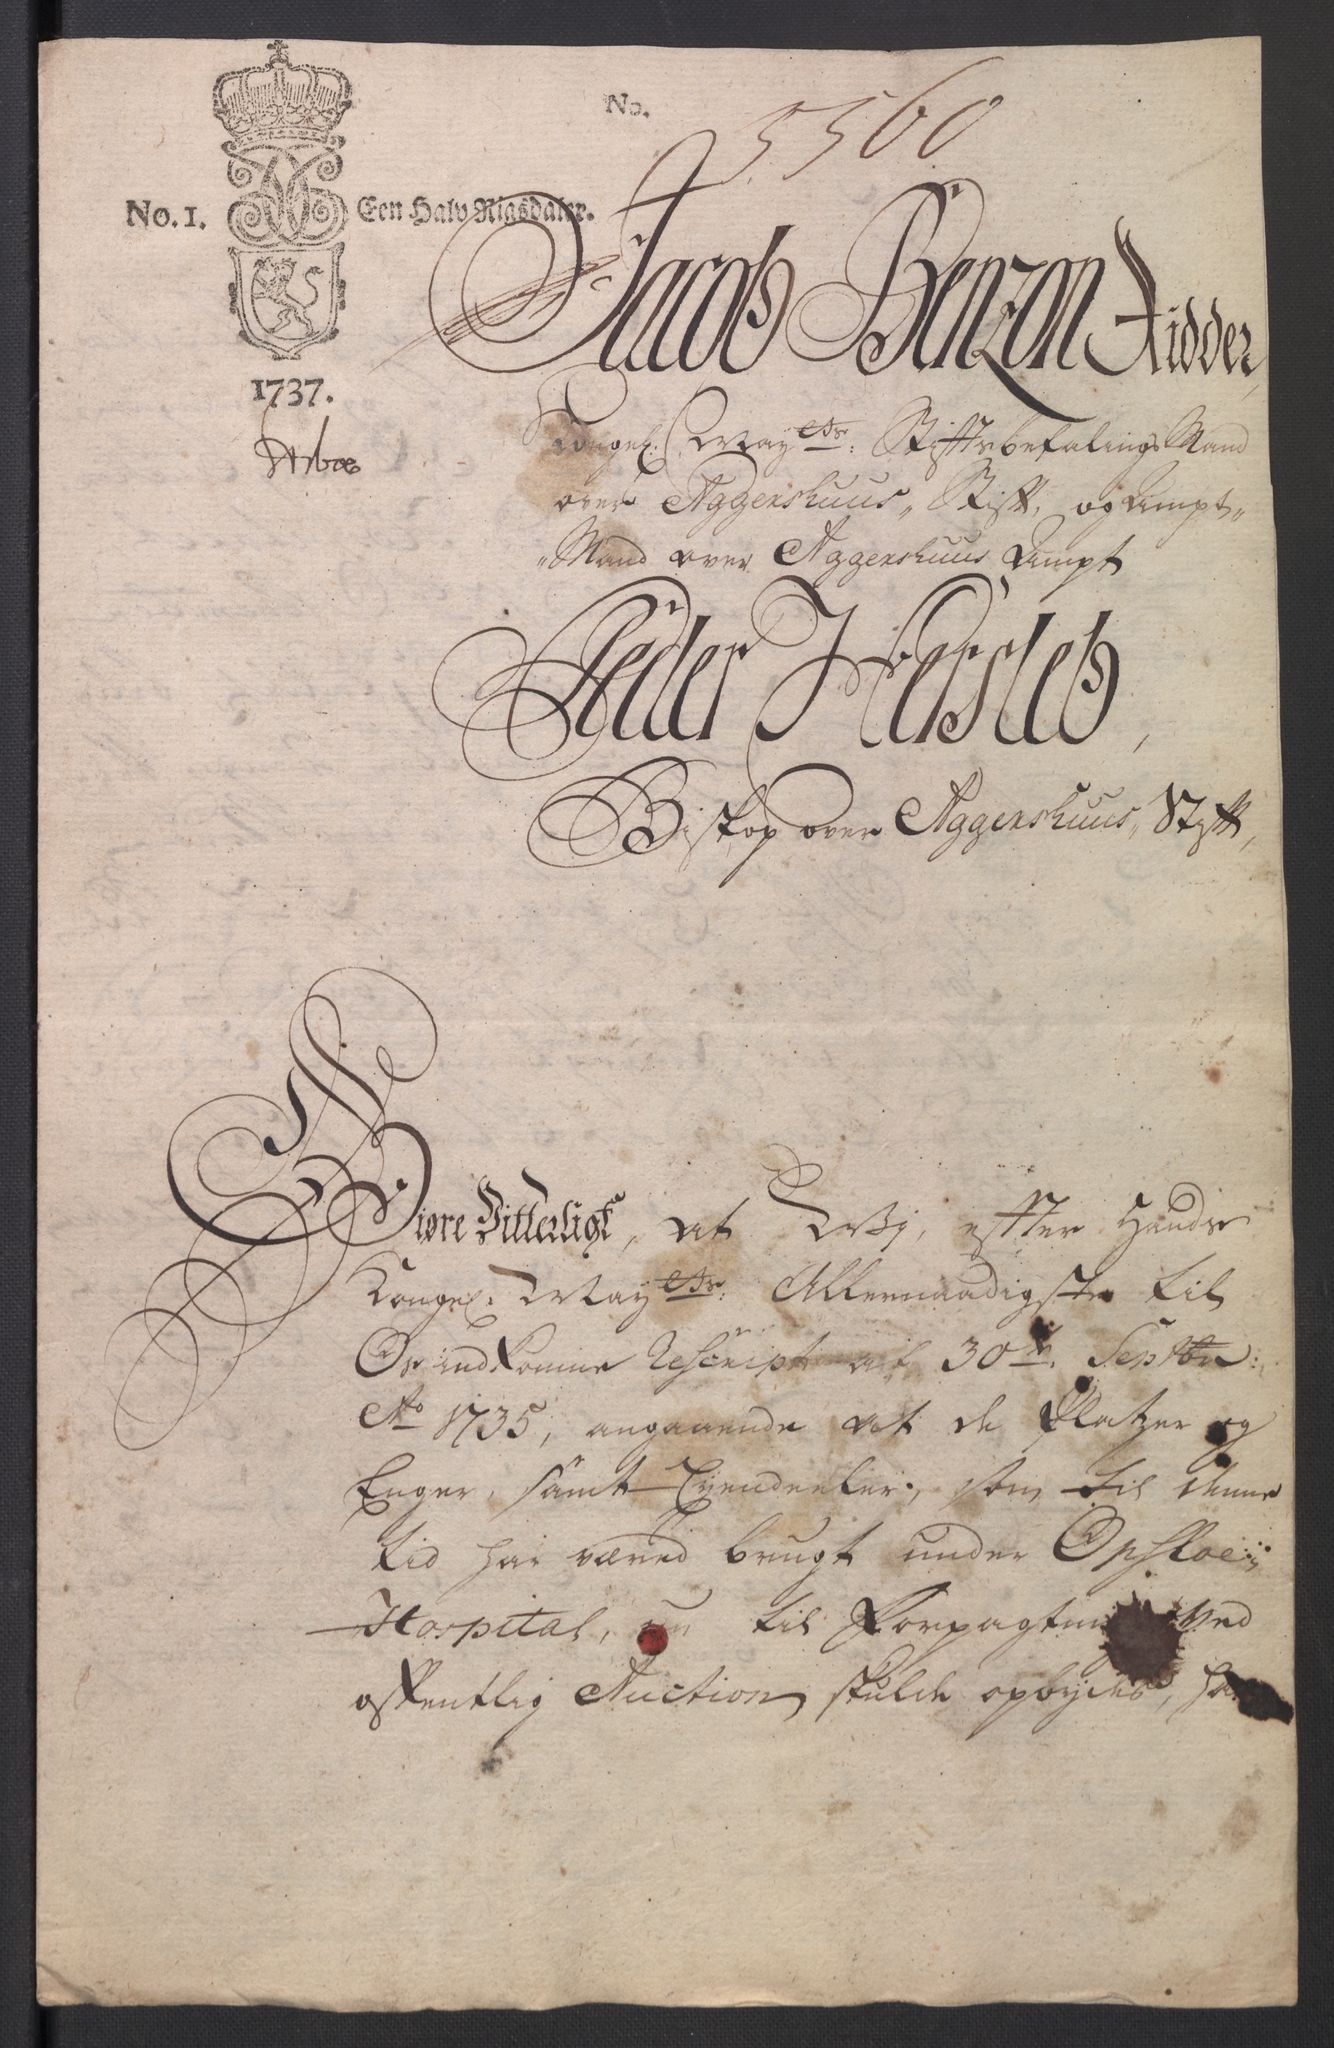 No. 5560
No. 1. Een Halv Rigsdaler.
1737.
Jacob Benzon Ridder,
Kongel: May^ts: Stiftsbefalings Mand
over Aggershuus Stift, og Ampt-
Mand over Aggershuus Ampt
Peder Hersleb,
Biskop over Aggershuus Stift,
Giøre Vitterligt, at Vi, efter Hands
Kongel: May^ts: Allernaadigste til
Os indkomne Rescript af 30^te Septbr:
A^o 1735, angaaende at de Platzer og
Enger, samt Tiendeeler, som til denne
tid har været brugt under Opsloe
Hospital, til Forpagtning ved
offentlig Auction skulde opbydes,